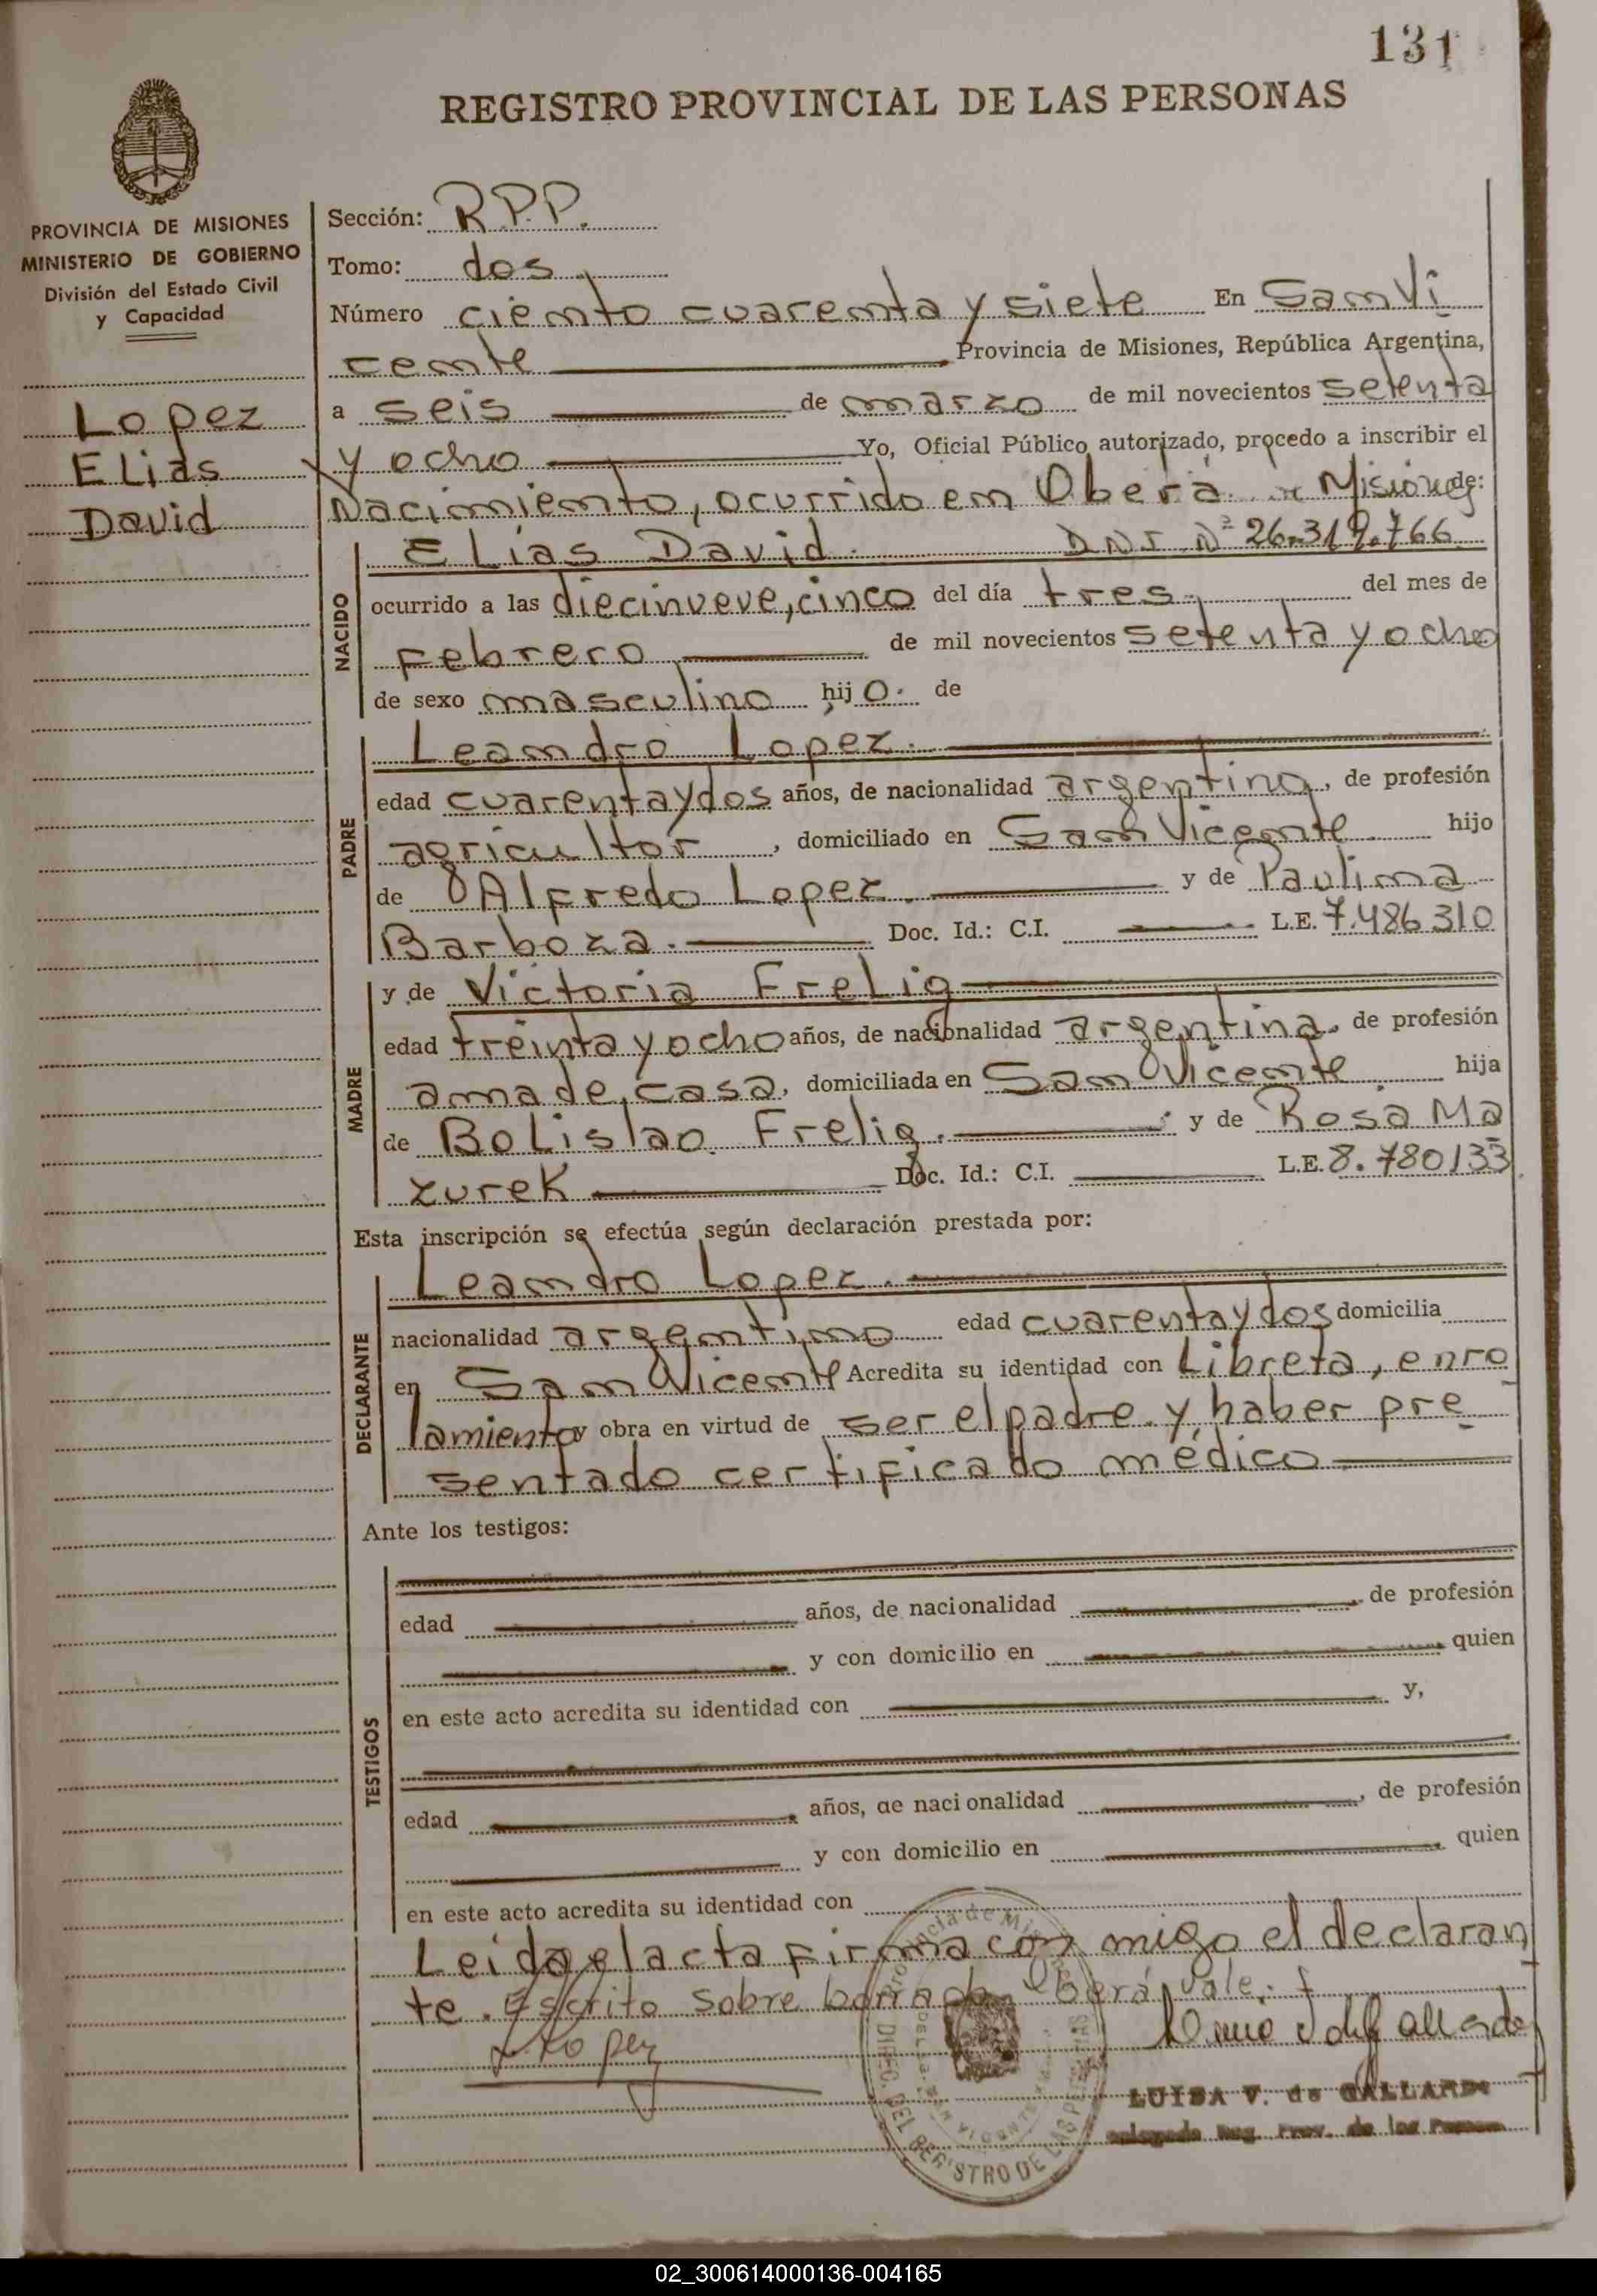 131
REGISTRO PROVINCIAL DE LAS PERSONAS
PROVINCIA DE MISIONES
MINISTERIO DE GOBIERNO
División del Estado Civil
y Capacidad
Lopez
Elias
David
Sección: R.P.P.
Tomo: dos.
Número ciento cuarenta y siete En San Vi
cente Provincia de Misiones, República Argentina,
a seis de marzo de mil novecientos setenta
y ocho Yo, Oficial Público autorizado, procedo a inscribir el
Nacimiento, ocurrido en Oberá Misiones de:
Elias David. DNI Nº 26.319.766
NACIDO
ocurrido a las diecinueve, cinco del día tres del mes de
Febrero de mil novecientos setenta y ocho
de sexo masculino hijo. de
Leandro Lopez.
PADRE
edad cuarenta y dos años, de nacionalidad argentino, de profesión
agricultor, domiciliado en San Vicente hijo
de Alfredo Lopez. y de Paulina
Barboza. Doc. Id.: C.I. L.E. 7.486310
MADRE
y de Victoria Frelig
edad treinta y ocho años, de nacionalidad argentina, de profesión
ama de casa, domiciliada en San Vicente hija
de Bolislao Frelig. y de Rosa Ma
zurek Doc. Id.: C.I. L.E. 8.780133
Esta inscripción se efectúa según declaración prestada por:
Leandro Lopez.
DECLARANTE
nacionalidad argentino edad cuarenta y dos domicilia
en San Vicente Acredita su identidad con Libreta, enro
lamiento y obra en virtud de ser el padre y haber pre
sentado certificado médico
Ante los testigos:
TESTIGOS
edad años, de nacionalidad de profesión
y con domicilio en quien
en este acto acredita su identidad con y,
edad años, de nacionalidad , de profesión
y con domicilio en quien
en este acto acredita su identidad con
Leida el acta firma con migo el declaran
te. Escrito sobre borrado Oberá vale.
Lopez
LUISA V. de GALLARDO
Delegada Reg. Prov. de las Personas
Provincia de Misiones
DIREC. DEL REGISTRO DE LAS PERSONAS
02_300614000136-004165